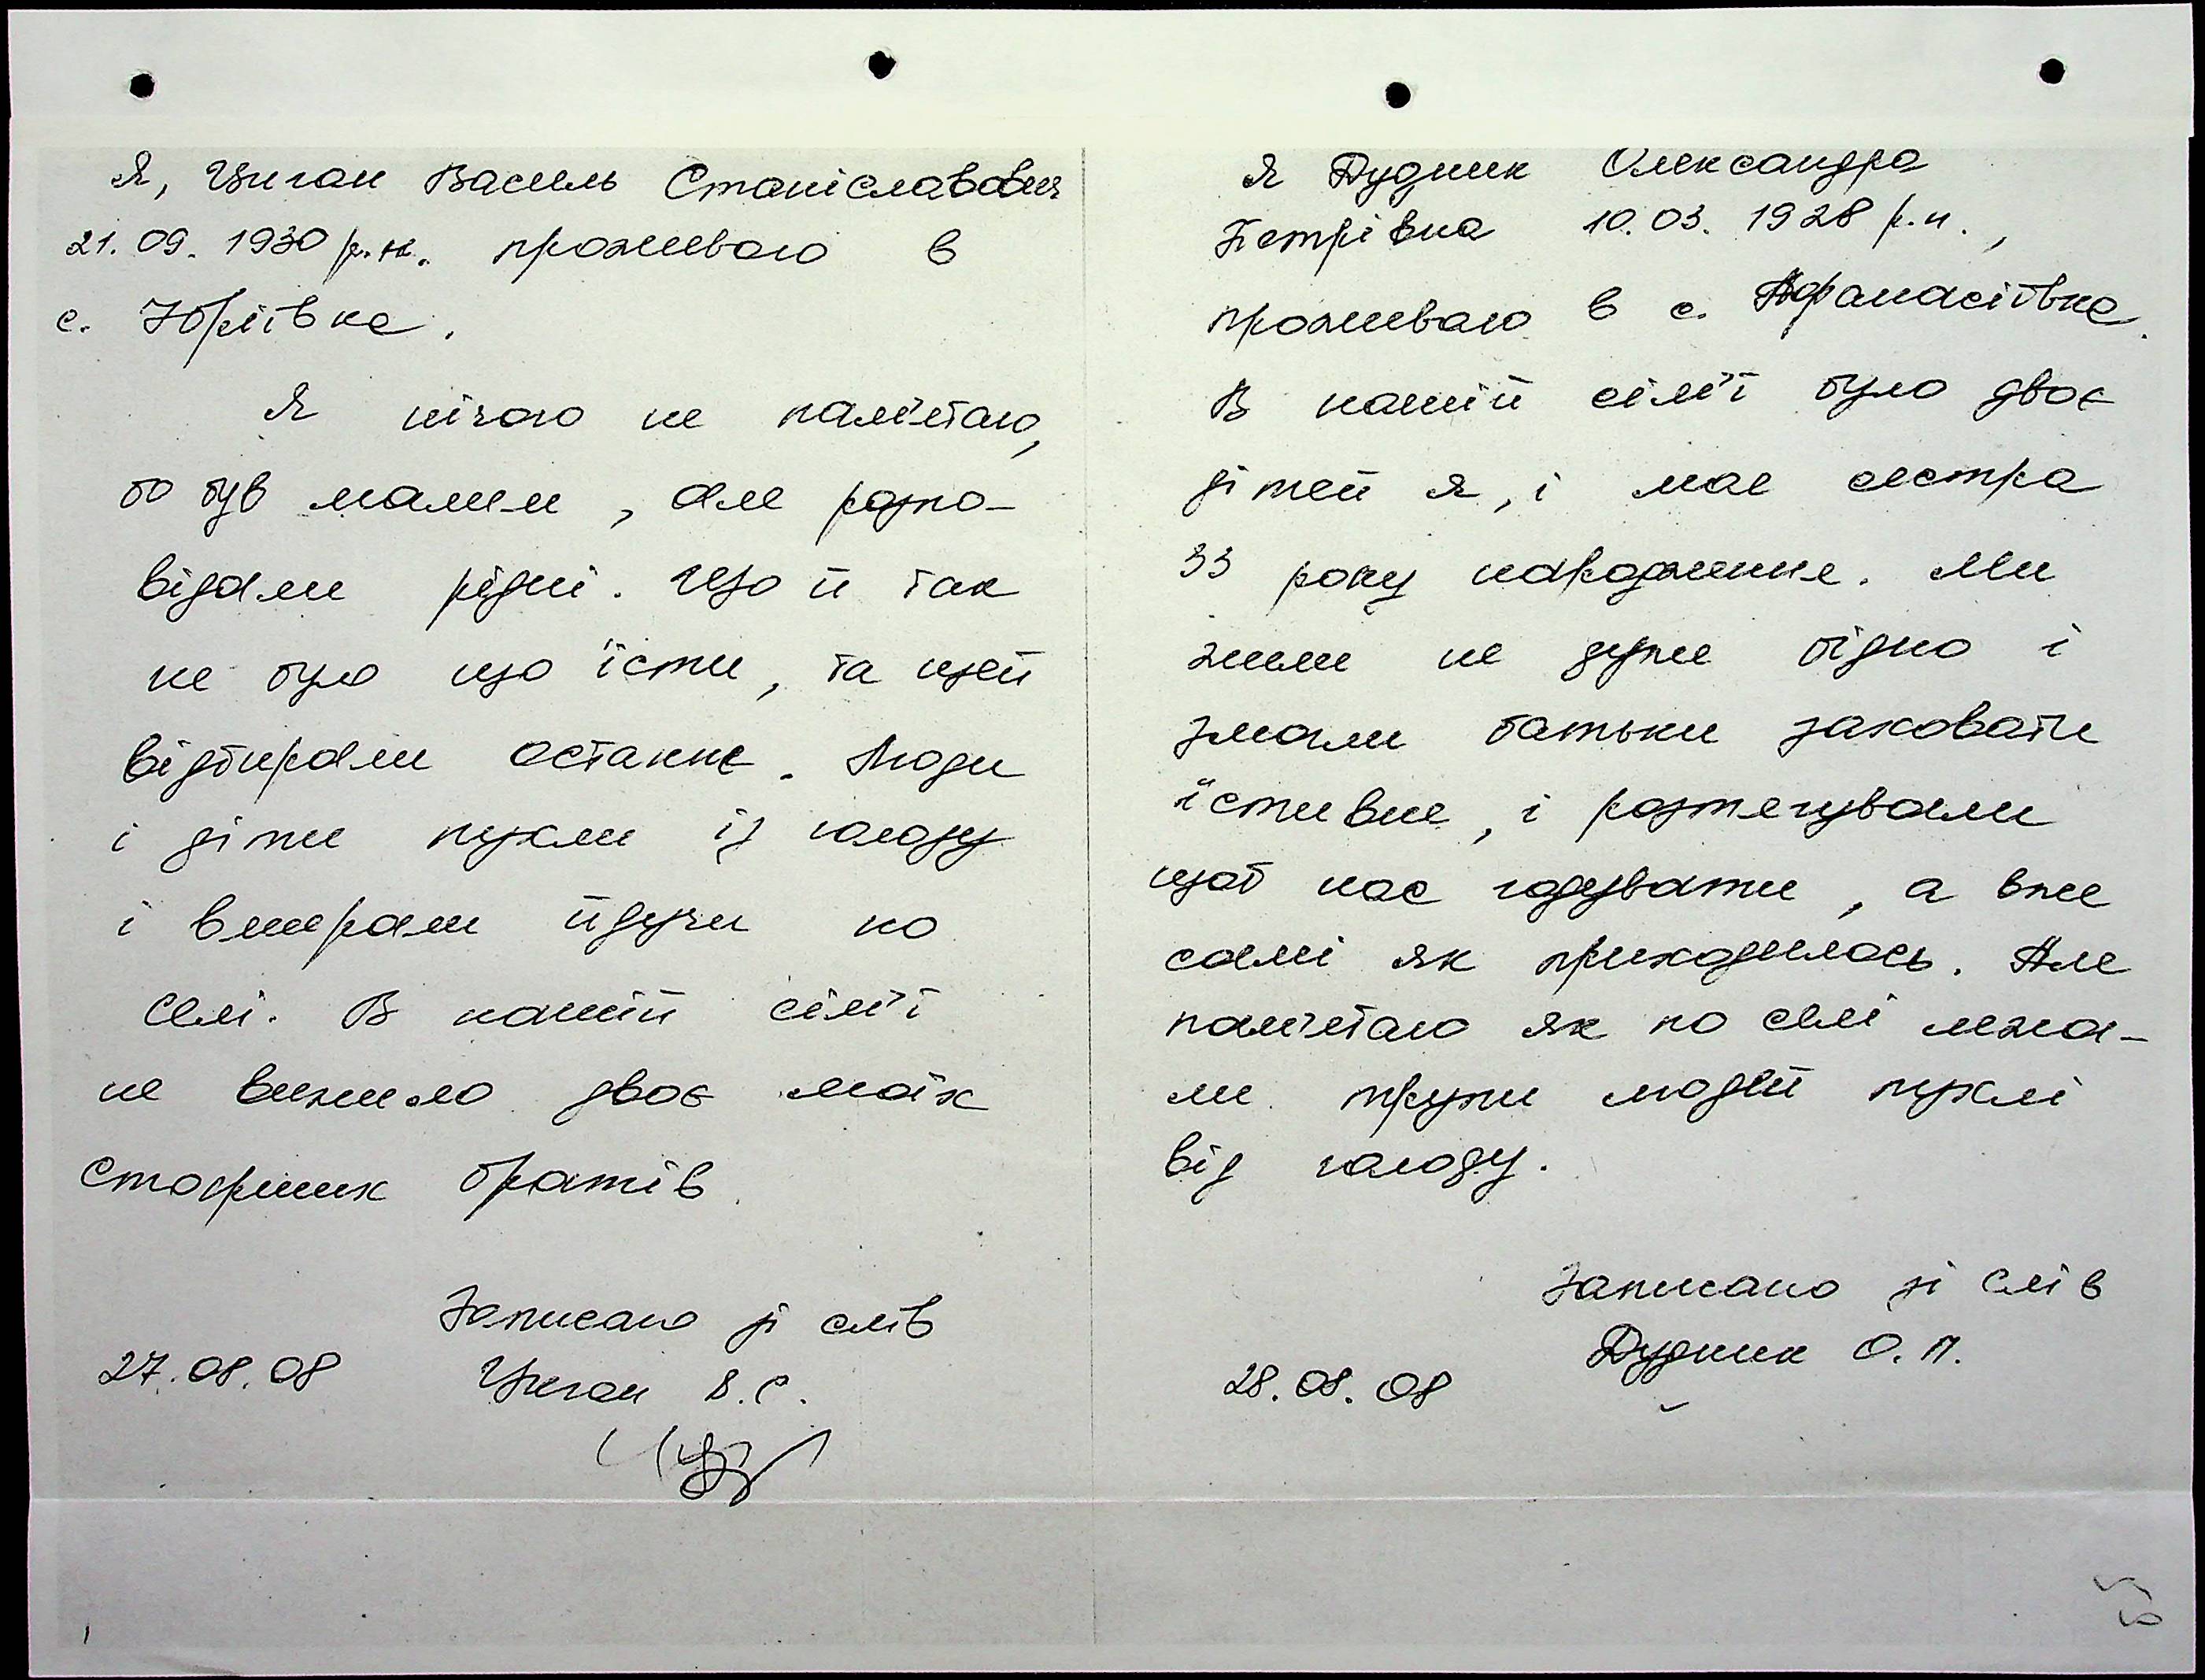 Я, Циган Василь Станіславович
21.09.1930 р.н. проживаю в
с. Юріївка.
Я нічого не пам'ятаю,
бо був малим, але розпо-
відали рідні. Що й так
не було що їсти, та щей
відбирали останнє. Люди
і діти пухли із голоду
і вмирали йдучи по
селі. В нашій сім'ї
не вижило двоє моїх
старших братів.
Записано зі слів
27.08.08 Циган В.С.
Я Дудник Олександра
Петрівна 10.03.1928 р.н.,
проживаю в с. Афанасіївка.
В нашій сім'ї було двоє
дітей я, і моя сестра
33 року народження. Ми
жили не дуже бідно і
змогли батьки заховати
їстивне, і розтягували
щоб нас годувати, а вже
самі як приходилось. Але
пам'ятаю як по селі лежа-
ли трупи людей пухлі
від голоду.
Записано зі слів
Дудник О.П.
28.08.08